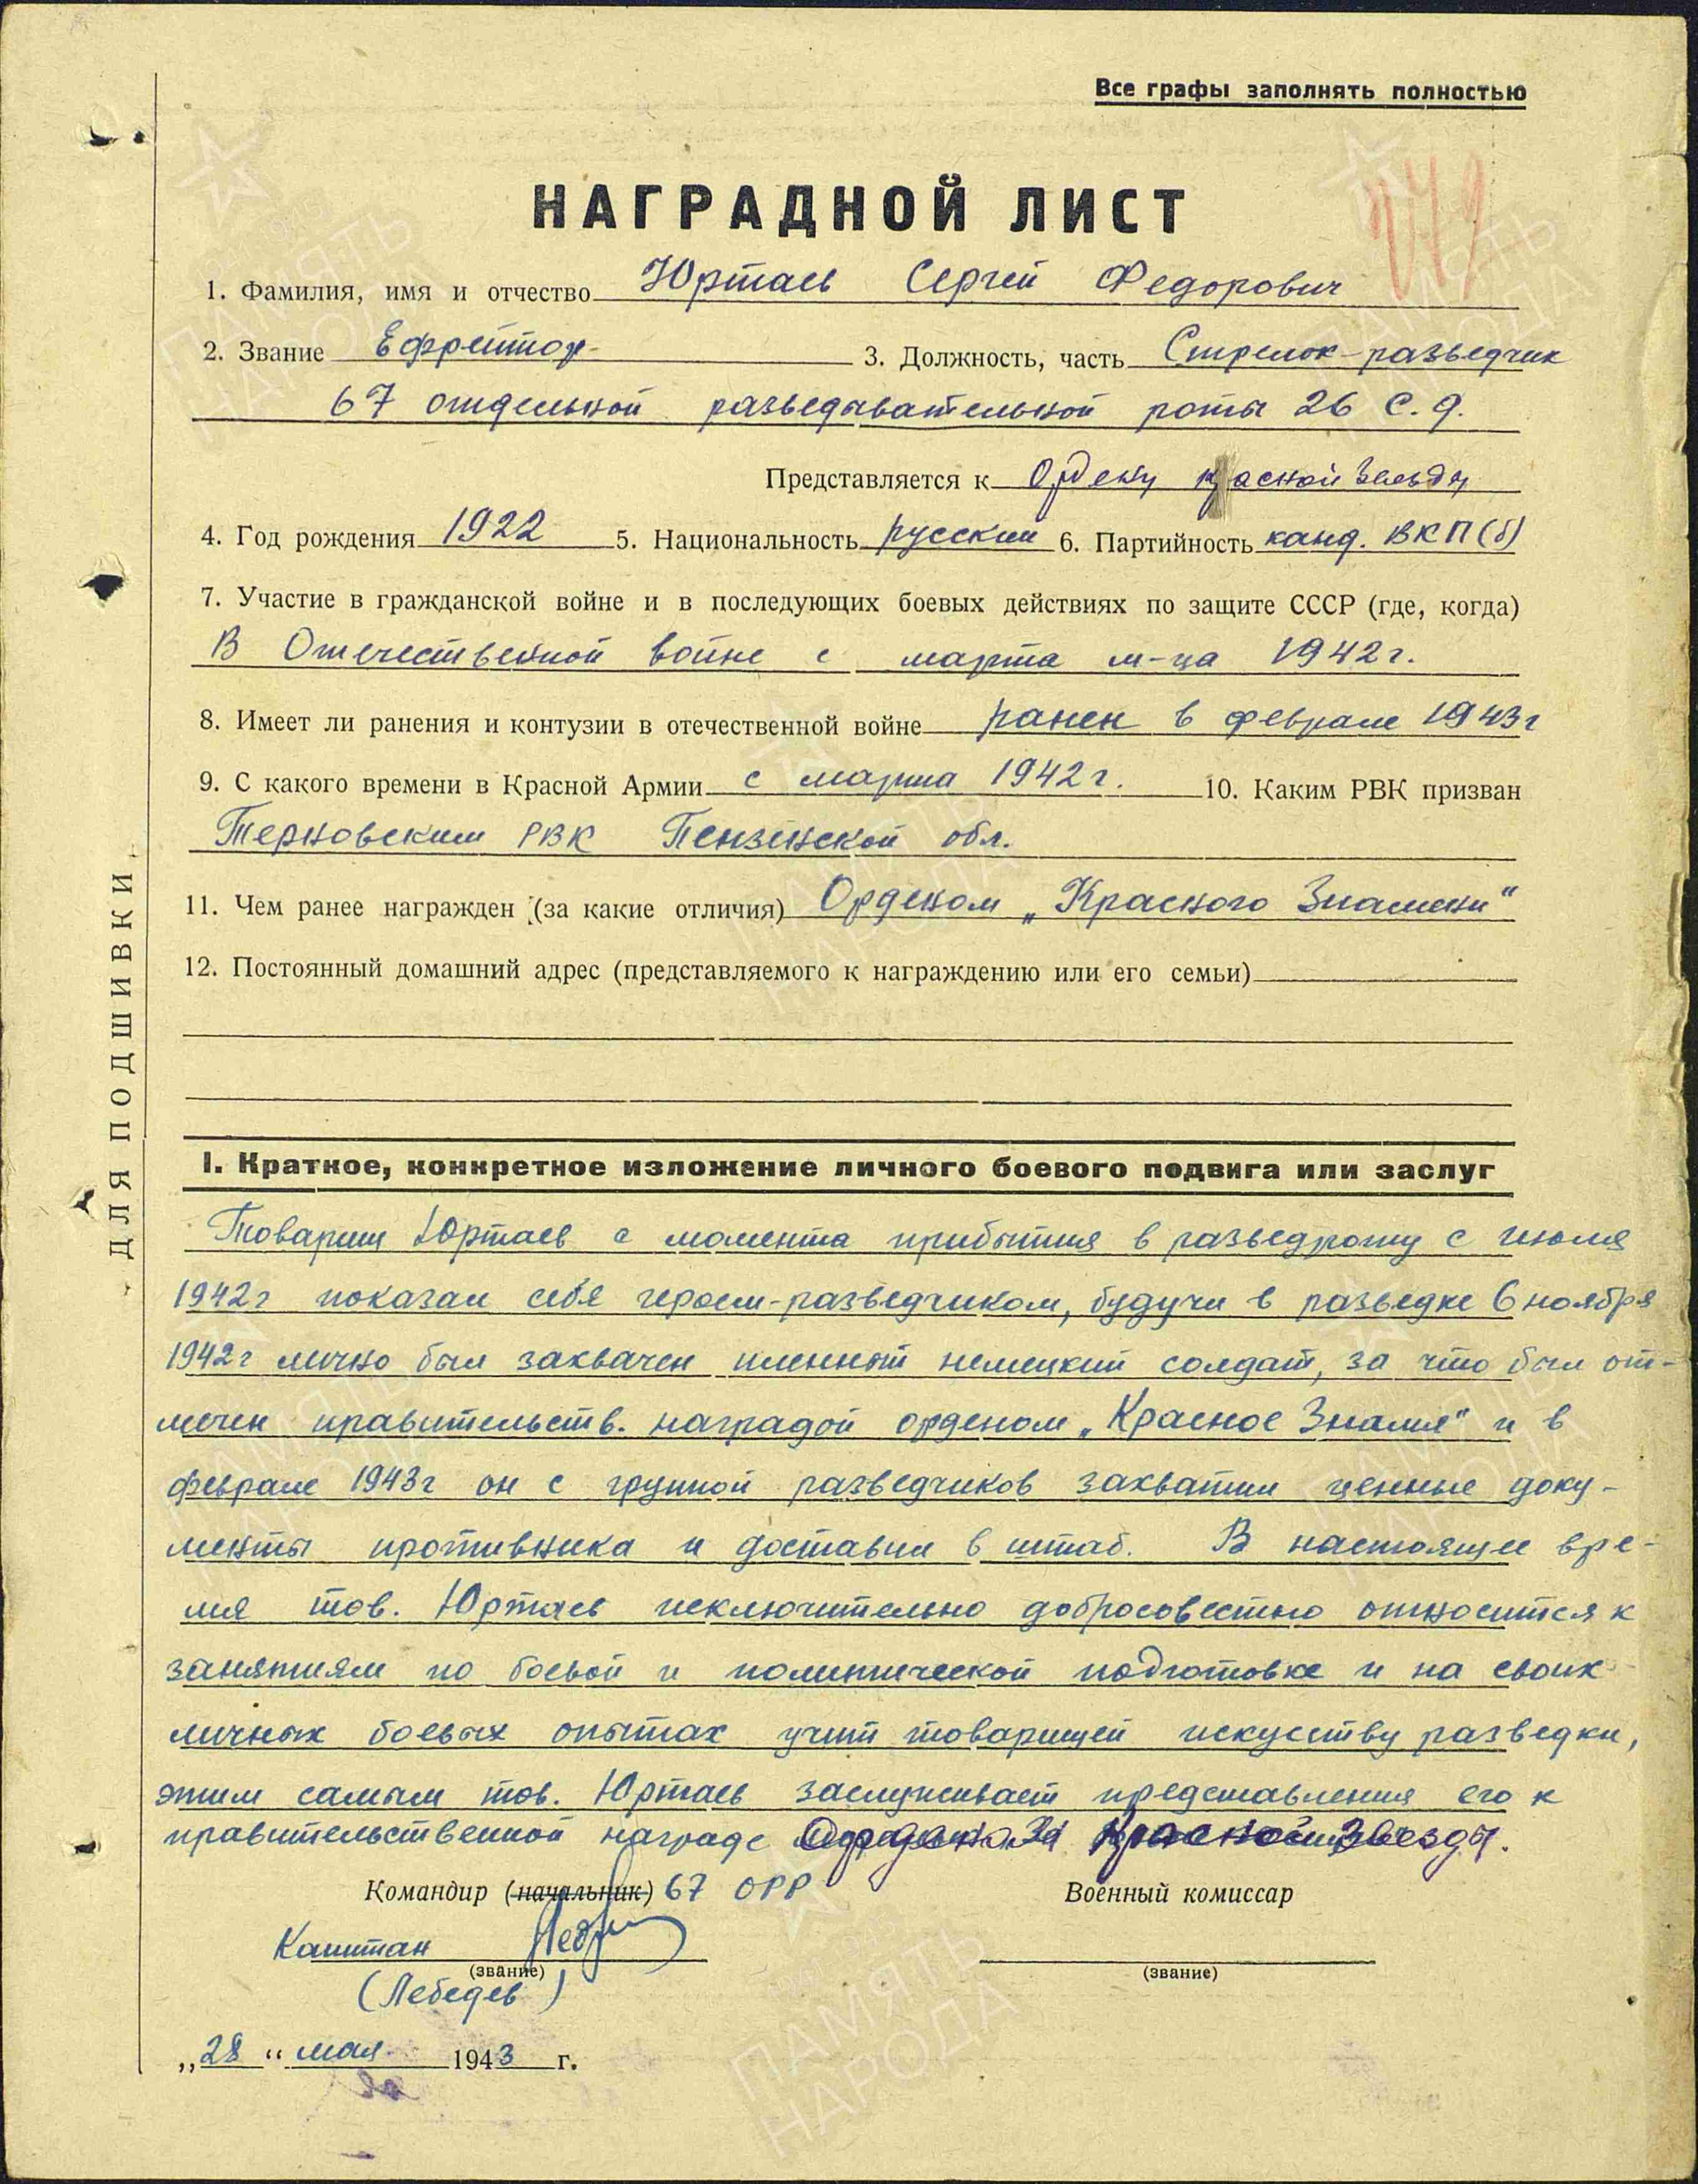 Все графы заполнять полностью
НАГРАДНОЙ ЛИСТ
1. Фамилия, имя и отчество Юртаев Сергей Федорович
2. Звание Ефрейтор 3. Должность, часть Стрелок-разведчик
67 отдельной разведывательной роты 26 С.д.
Представляется к Ордену Красной Звезды
4. Год рождения 1922 5. Национальность русский 6. Партийность канд. ВКП(б)
7. Участие в гражданской войне и в последующих боевых действиях по защите СССР (где, когда)
В Отечественной войне с марта м-ца 1942г.
8. Имеет ли ранения и контузии в отечественной войне ранен в феврале 1943г
9. С какого времени в Красной Армии с марта 1942г. 10. Каким РВК призван
Терновским РВК Пензенской обл.
11. Чем ранее награжден (за какие отличия) Орденом „Красного Знамени“
12. Постоянный домашний адрес (представляемого к награждению или его семьи)
ДЛЯ ПОДШИВКИ
I. Краткое, конкретное изложение личного боевого подвига или заслуг
Товарищ Юртаев с момента прибытия в разведроту с июля
1942г показал себя героем-разведчиком, будучи в разведке 6 ноября
1942г лично был захвачен пленный немецкий солдат, за что был от-
мечен правительств. наградой орденом „Красное Знамя“ и в
феврале 1943г он с группой разведчиков захватил ценные доку-
менты противника и доставил в штаб. В настоящее вре-
мя тов. Юртаев исключительно добросовестно относится к
занятиям по боевой и политической подготовке и на своих
личных боевых опытах учит товарищей искусству разведки,
этим самым тов. Юртаев заслуживает представления его к
правительственной награде Красной Звезды.
Командир (начальник) 67 ОРР Военный комиссар
Капитан
(звание) (звание)
(Лебедев)
„28“ мая 1943 г.
ПАМЯТЬ
НАРОДА